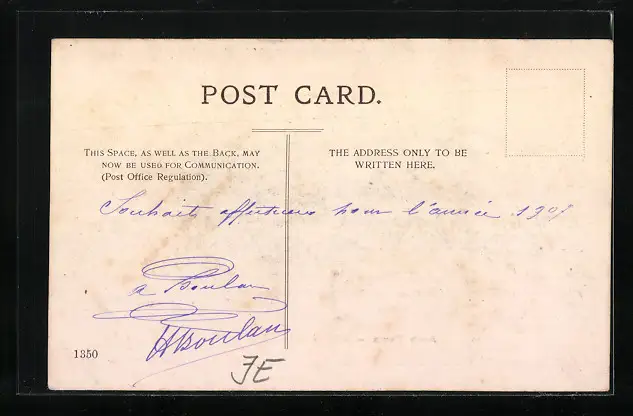 POST CARD.
THIS SPACE, AS WELL AS THE BACK, MAY
NOW BE USED FOR COMMUNICATION.
(Post Office Regulation).
THE ADDRESS ONLY TO BE
WRITTEN HERE.
Souhaits affectueux pour l'année 1907
a Boulan
ABoulan
1350
JE